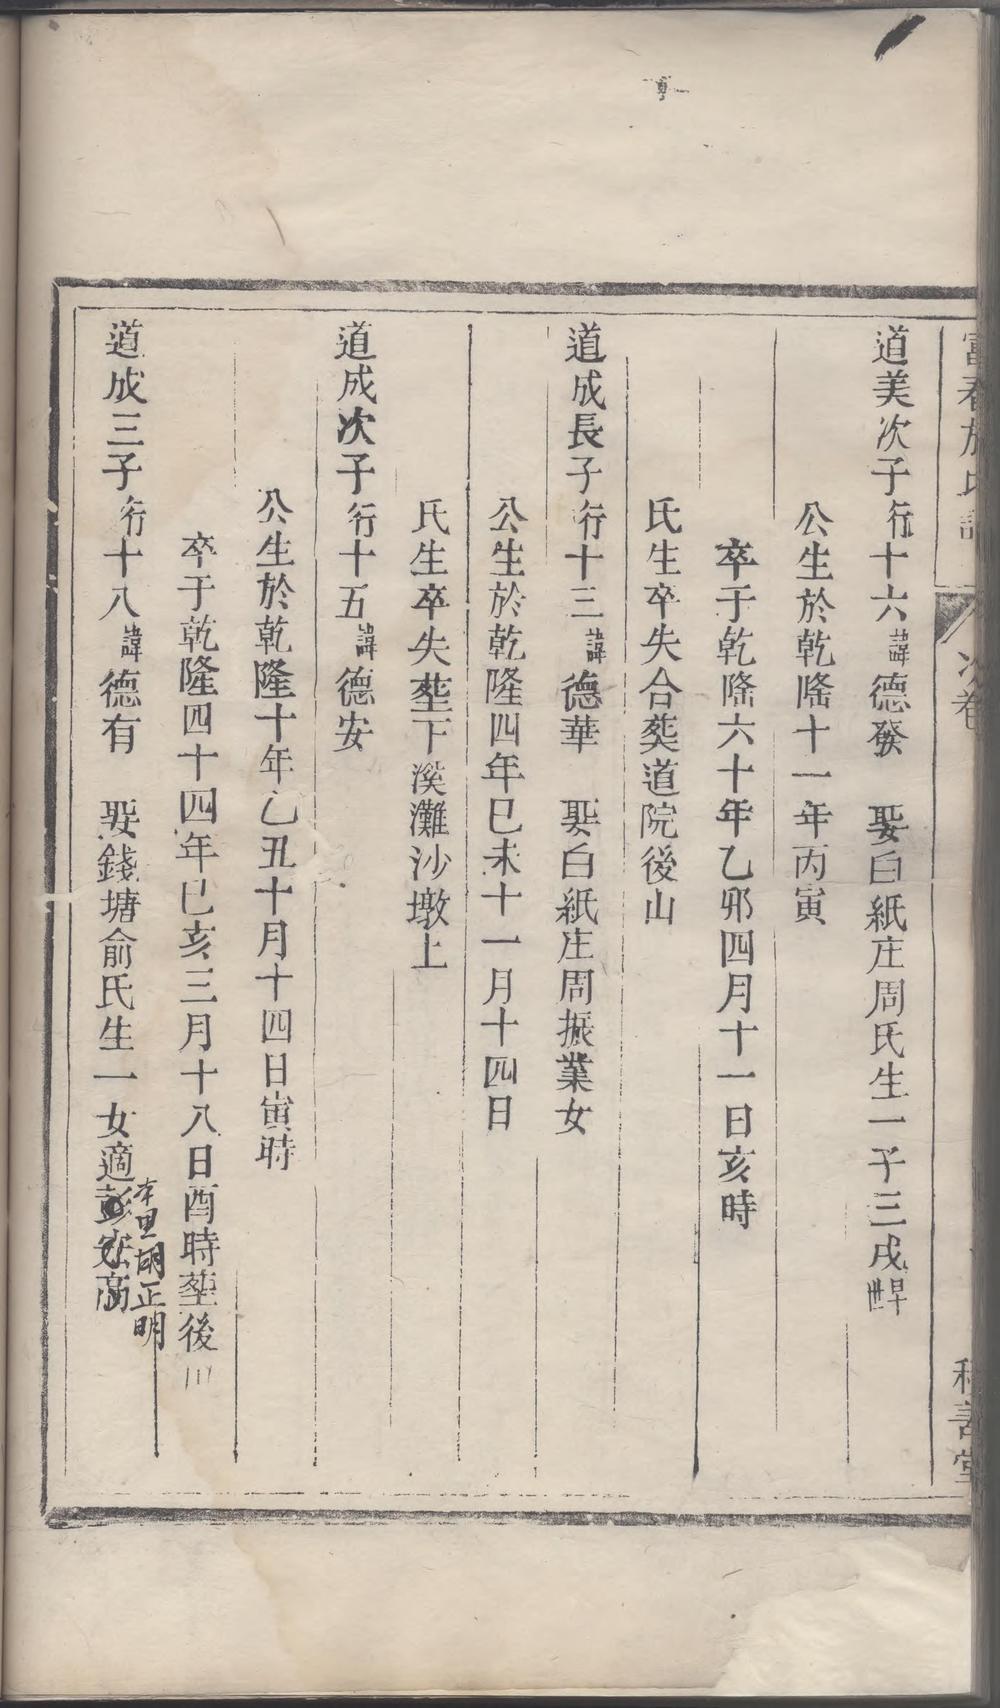 富春施氏譜 次卷 積善堂
道美次子行十六諱德發 娶白紙庄周氏生一子三戌早世
公生於乾隆十一年丙寅
卒于乾隆六十年乙邜四月十一日亥時
氏生卒失合塟道院後山
道成長子行十三諱德華 娶白紙庄周振業女
公生於乾隆四年已未十一月十四日
氏生卒失塟下溪灘沙墩上
道成次子行十五諱德安
公生於乾隆十年乙丑十月十四日寅時
卒于乾隆四十四年已亥三月十八日酉時塟後山
道成三子行十八諱德有 娶錢塘俞氏生一女適
本里胡正明